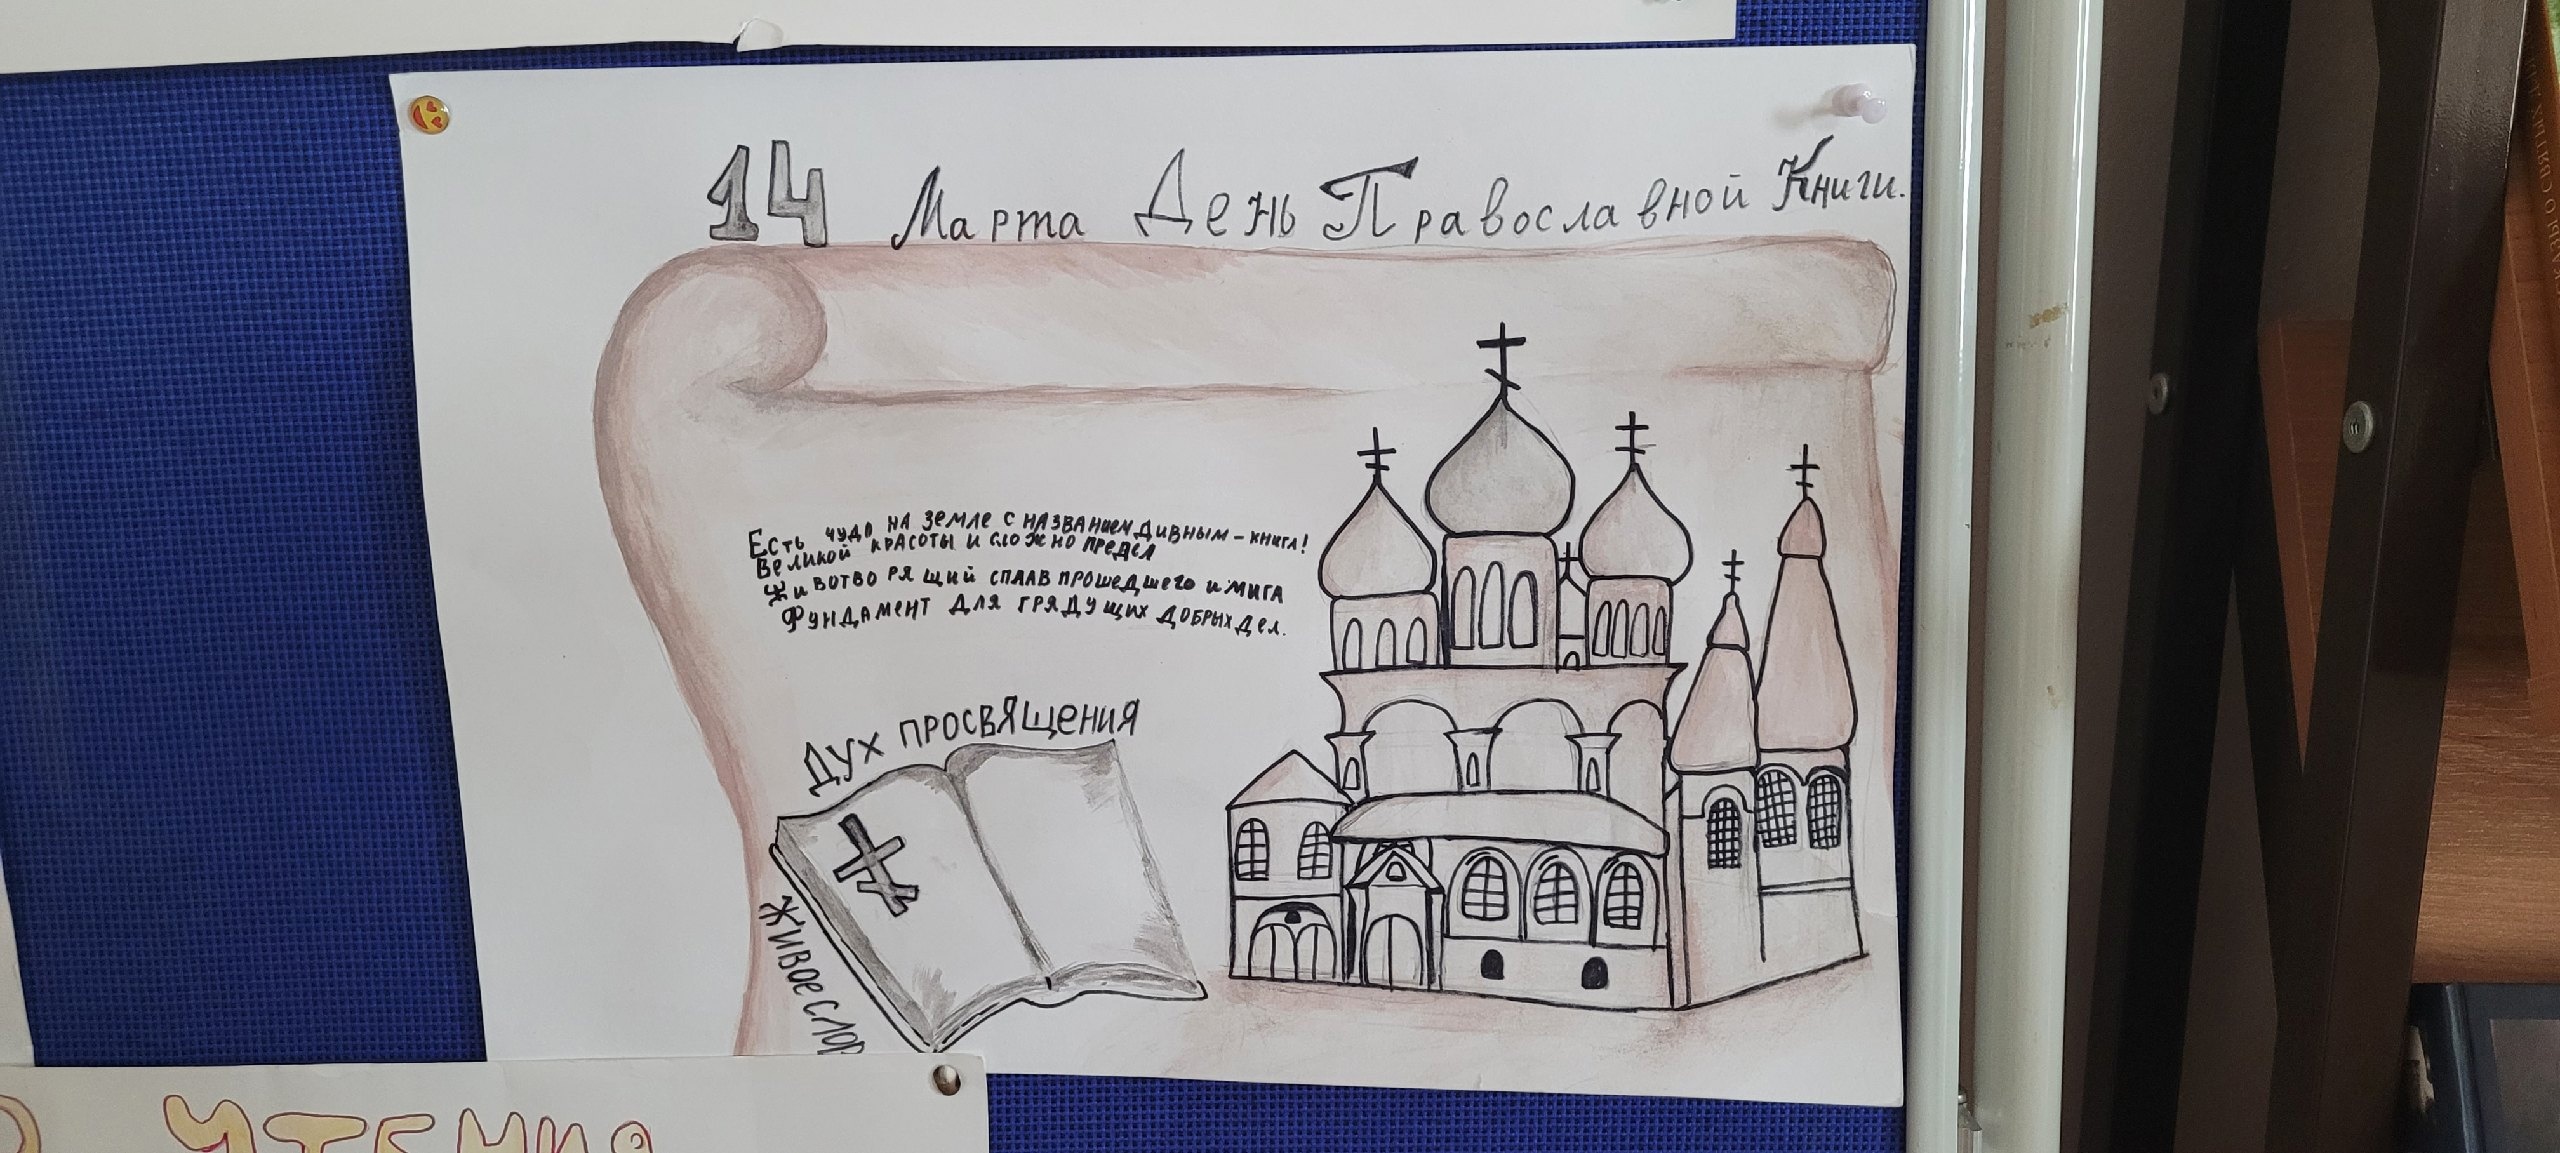 14 Марта День Православной Книги.
Есть чудо на земле с названием дивным – книга!
Великой красоты и сложно предел
Животворящий сплав прошедшего и мига
Фундамент для грядущих добрых дел.
Дух просвящения
Живое слов
чтения